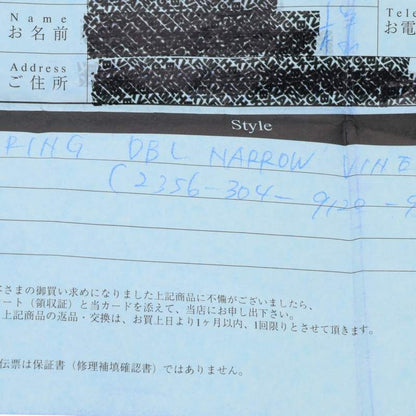 Name
お名前
Tele
お電
Address
ご住所
Style
RING DBL NARROW VINE
(2356-304-9120-
さまの御買い求めになりました上記商品に不備がございましたら、
ート（領収証）と当カードを添えて、当店にお申し出下さい。
上記商品の返品・交換は、お買上日より1ヶ月以内、1回限りとさせて頂きます。
伝票は保証書（修理補填確認書）ではありません。